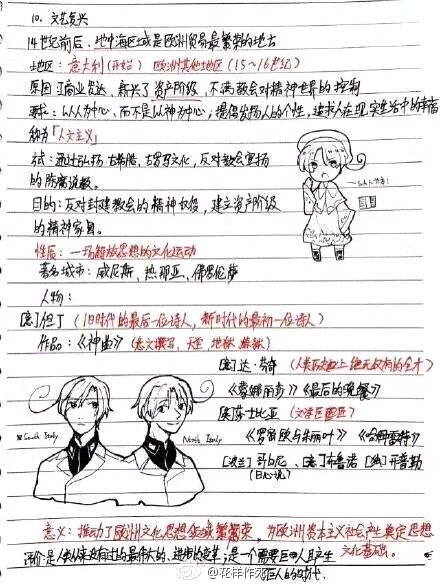 10. 文艺复兴
14世纪前后、地中海区域是欧洲贸易最繁荣的地方
地区：意大利(开始) 欧洲其他地区(15~16世纪)
原因：商业发达，新兴了资产阶级，不满教会对精神世界的控制
要求：以人为中心、而不是以神为中心；提倡发扬人的个性，追求人在现实生活中的幸福
称为「人文主义」
方式：通过弘扬古希腊、古罗马文化，反对教会宣扬
的陈腐说教。
目的：反对封建教会的精神奴役，建立资产阶级
的精神家园。
性质：一场解放思想的文化运动
著名城市：威尼斯、热那亚、佛罗伦萨
人物：
[意]但丁(旧时代的最后一位诗人，新时代的最初一位诗人)
作品：《神曲》(意文撰写，天堂，地狱，炼狱)
[意]达·芬奇(人类历史上绝无仅有的全才)
《蒙娜丽莎》《最后的晚餐》
[英]莎士比亚(文学巨匠)
《罗密欧与朱丽叶》《哈姆雷特》
[波兰]哥白尼、[意]布鲁诺 [德]开普勒
(日心说)
South Italy
North Italy
意义：推动了欧洲文化思想领域繁荣，为欧洲资本主义社会产生奠定思想
文化基础。
评价：是人类从来没有过的最伟大的、进步的变革，是一个需要巨人且产生
巨人的时代.
@花样作死